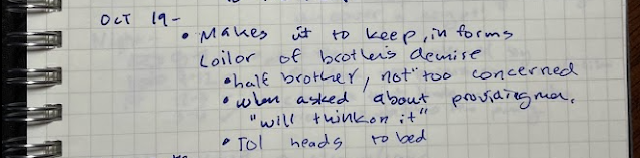 OCT 19-
• Makes it to keep, in forms
Loilor of brother's demise
• half brother, not too concerned
• when asked about providing
"will think on it"
• Tol heads to bed